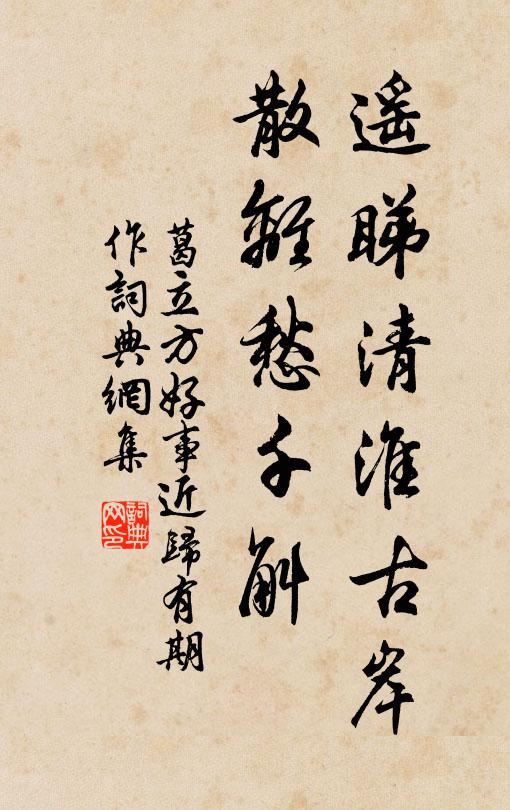 遥睇清淮古岸
散離愁千斛
葛立方好事近歸有期
作詞典網集
詞典网印